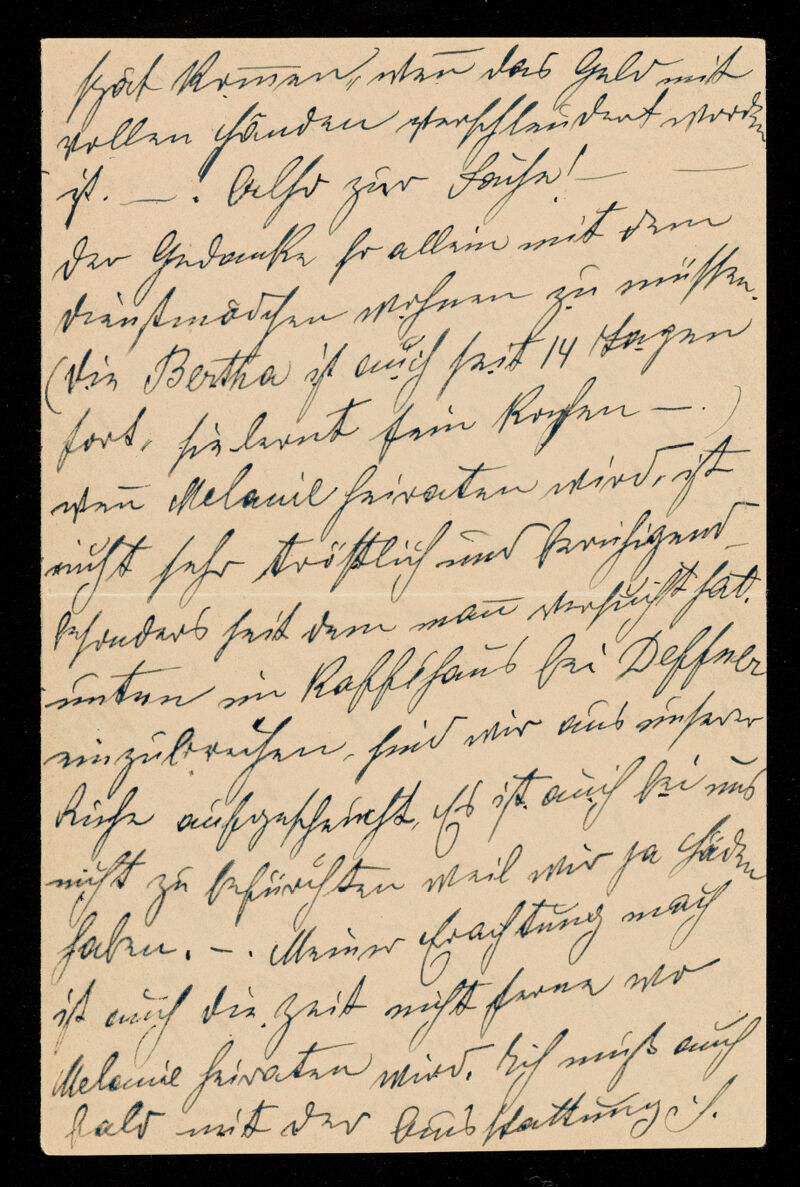 spät kom̅en", wen̅ das Geld mit
vollen Händen verschleudert worden
ist. —. Also zur Sache! — —
der Gedanke so allein mit dem
Dienstmädchen wohnen zu müssen.
(die Bertha ist auch seit 14 Tagen
fort, sie lernt fein kochen —.)
wen̅ Melanie heiraten wird, ist
nicht sehr tröstlich und beruhigend
besonders seit dem man̅ versucht hat.
unten im Kaffehaus bei Deffner
einzubrechen, sind wir aus unserer
Ruhe aufgescheucht, Es ist auch bei uns
nicht zu befürchten weil wir ja Läden
haben. —. Meiner Erachtung nach
ist auch die Zeit nicht ferne wo
Melanie heiraten wird. Ich muß auch
bald mit der Ausstattung